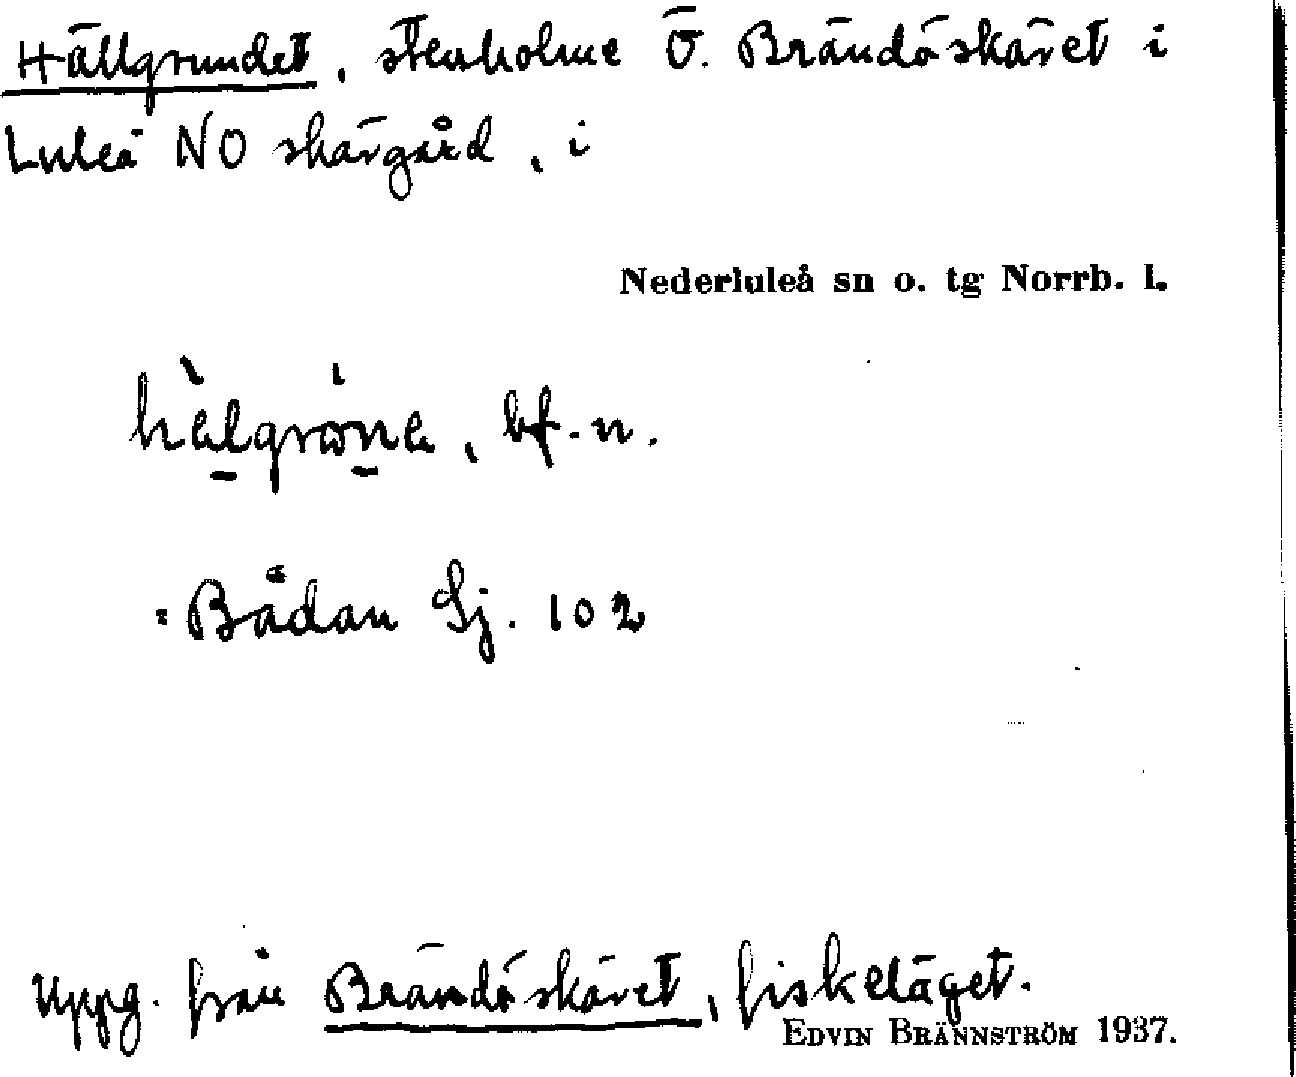 Hällgrundet, stenholme Ö. Brändöskäret i
Luleå NO skärgård, i
Nederluleå sn o. tg Norrb. l.
bf. n.
= Bådan Sj. 102
Uppg. från Brändöskäret, fiskeläget.
EDVIN BRÄNNSTRÖM 1937.